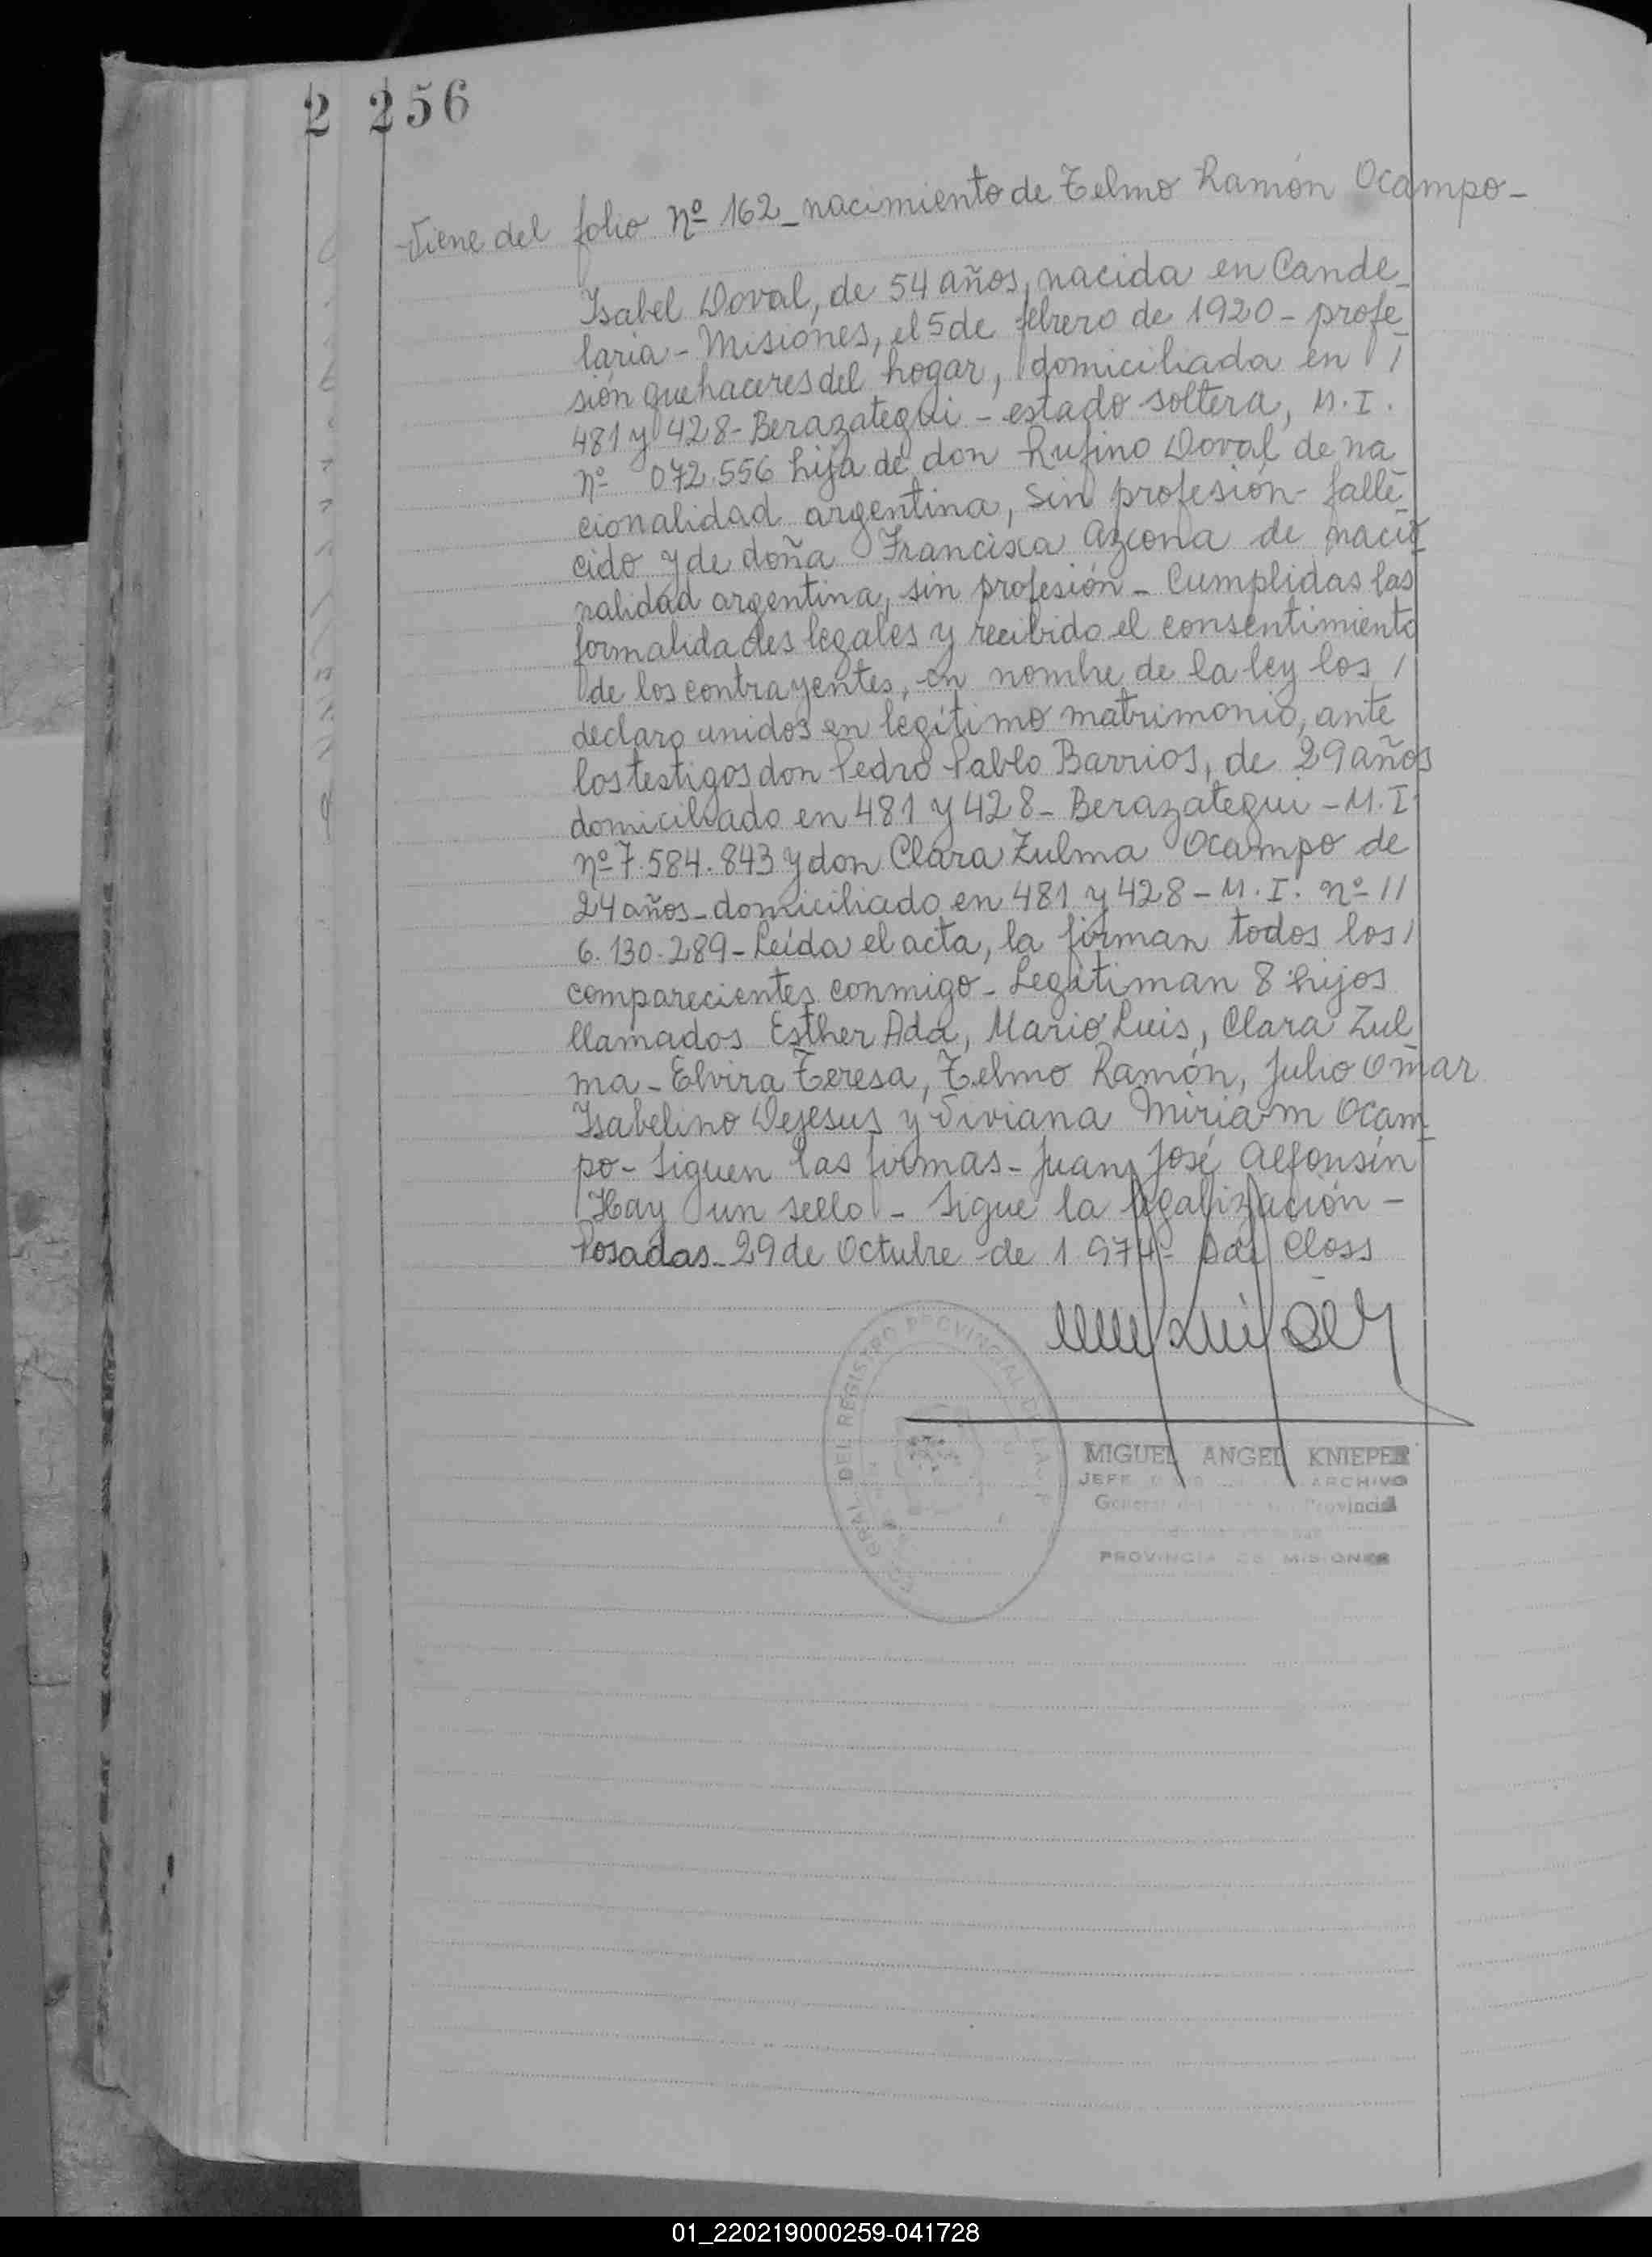 2 256
Viene del folio Nº 162_nacimiento de Telmo Ramón Ocampo_
Isabel Doval, de 54 años, nacida en Cande_
laria - Misiones, el 5 de febrero de 1920 - profe_
sión quehaceres del hogar, domiciliada en /
481 y 428 - Berazategui - estado soltera, M.I.
nº 072.556 hija de don Rufino Doval de na
cionalidad argentina, sin profesión - falle_
cido y de doña Francisca Azcona de nacio
nalidad argentina, sin profesión - Cumplidas las
formalidades legales y recibido el consentimiento
de los contrayentes, en nombre de la ley los /
declaro unidos en legítimo matrimonio, ante
los testigos don Pedro Pablo Barrios, de 29 años
domiciliado en 481 y 428 - Berazategui - M.I.
nº 7.584.843 y don Clara Zulma Ocampo de
24 años - domiciliado en 481 y 428 - M.I. nº //
6.130.289 - Leída el acta, la firman todos los /
comparecientes conmigo - Legitiman 8 hijos
llamados Esther Ada, Mario Luis, Clara Zul
ma - Elvira Teresa, Telmo Ramón, Julio Omar
Isabelino Dejesus y Viviana Miriam Ocam_
po - Siguen las firmas - Juan José Alfonsín
Hay un sello - Sigue la legalización -
Posadas - 29 de Octubre de 1974 - Closs
DEL REGISTRO PROVINCIAL
MIGUEL ANGEL KNIEPER
JEFE ARCHIVO
General Provincial
PROVINCIA DE MISIONES
01_220219000259-041728